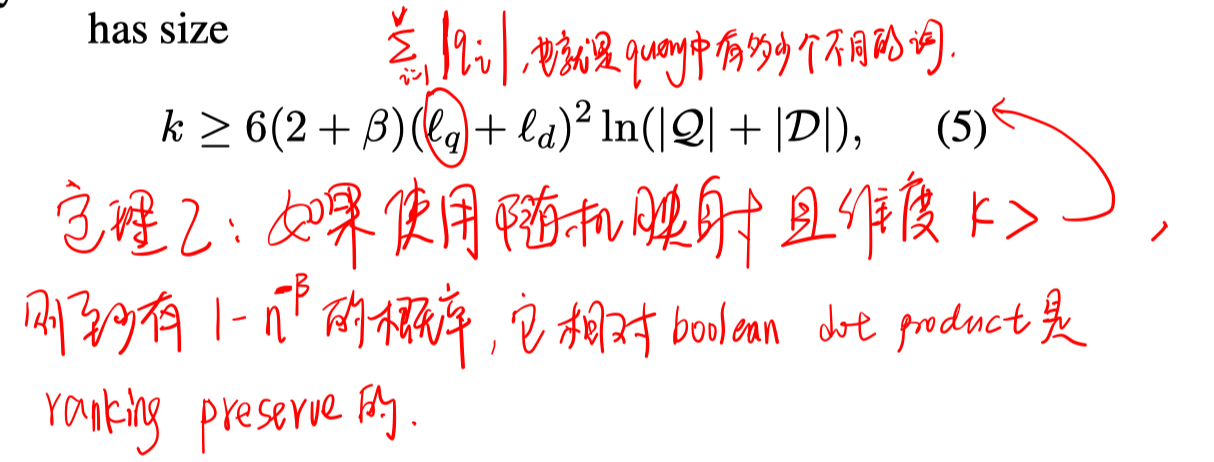 has size
$\sum_{i=1}^{v} |q_i|$, 也就是query中有多少个不同的词.
$k \geq 6(2 + \beta)(\ell_q + \ell_d)^2 \ln(|\mathcal{Q}| + |\mathcal{D}|),$ (5)
定理2: 如果使用随机映射且维度 k > ,
则至少有 $1 - n^{-\beta}$ 的概率, 它相对 boolean dot product 是
ranking preserve 的.